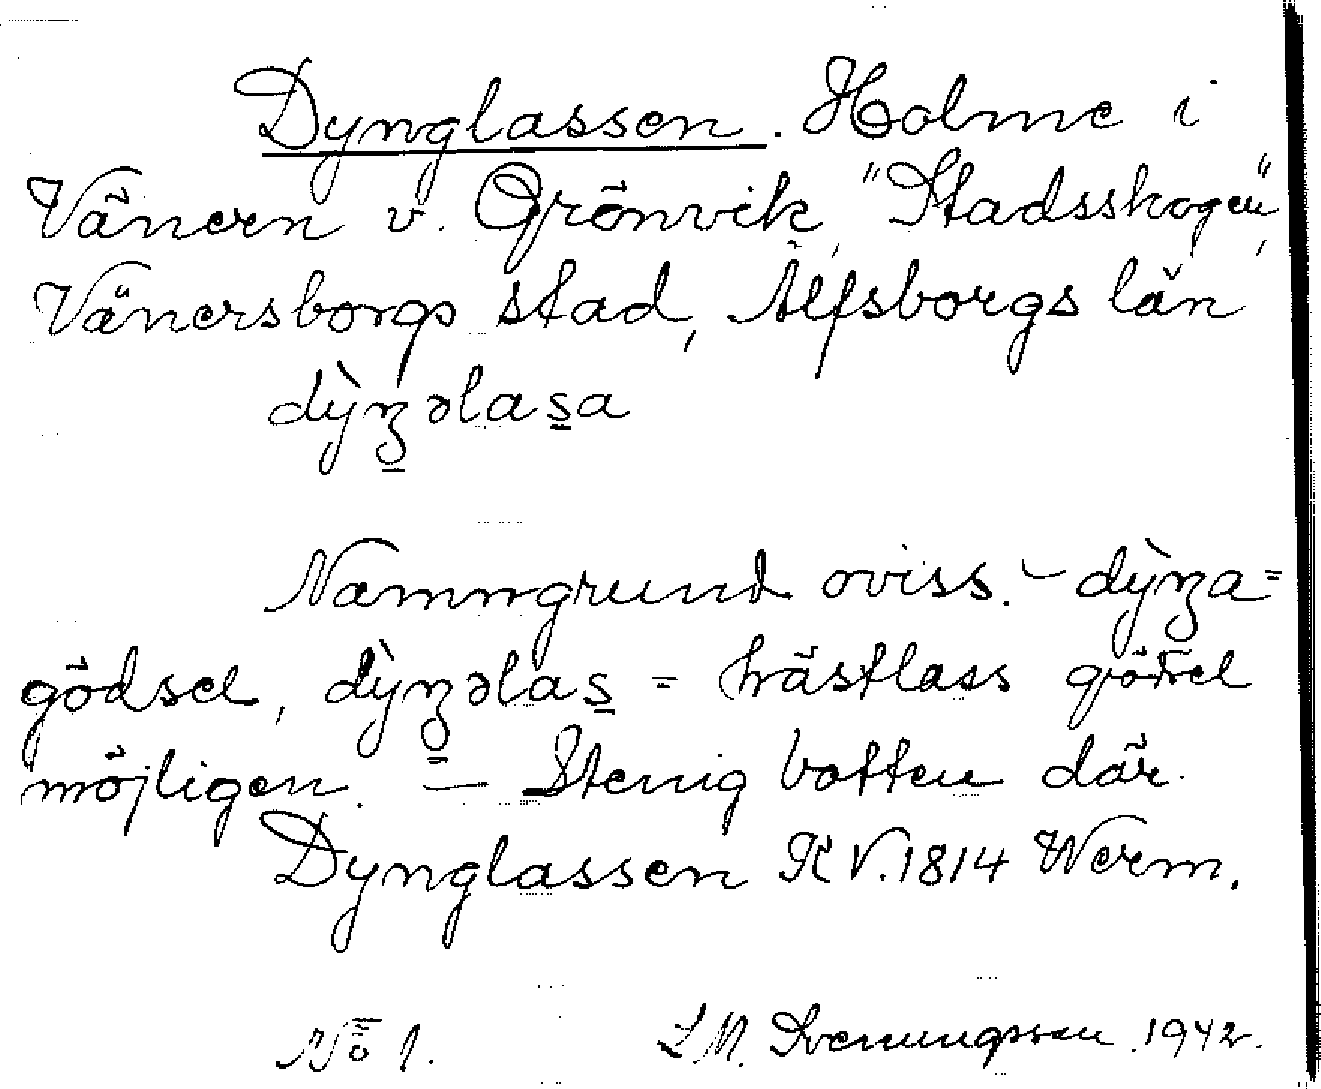 Dynglassen. Holme i
Vänern v. Grönvik, "Stadsskogen",
Vänersborgs stad, Älfsborgs län
dỳŋəlas̲a
Namngrund oviss. – dỳŋa=
gödsel, dỳŋəlas̲ = hästlass gödsel
möjligen. — Stenig botten där.
Dynglassen K V. 1814 Werm.
No 1. L M. Svenungsson. 1942.